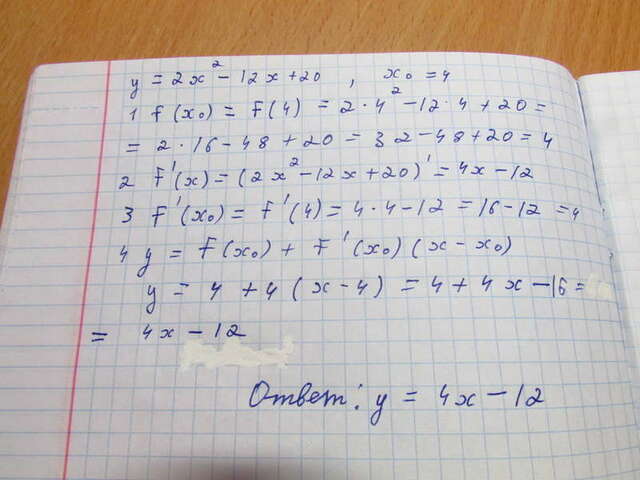 y = 2x² - 12x + 20 , x₀ = 4
1 f(x₀) = f(4) = 2 · 4² - 12 · 4 + 20 =
= 2 · 16 - 48 + 20 = 32 - 48 + 20 = 4
2 f'(x) = (2x² - 12x + 20)' = 4x - 12
3 f'(x₀) = f'(4) = 4 · 4 - 12 = 16 - 12 = 4
4 y = f(x₀) + f'(x₀) (x - x₀)
y = 4 + 4(x - 4) = 4 + 4x - 16 =
= 4x - 12
Ответ: y = 4x - 12